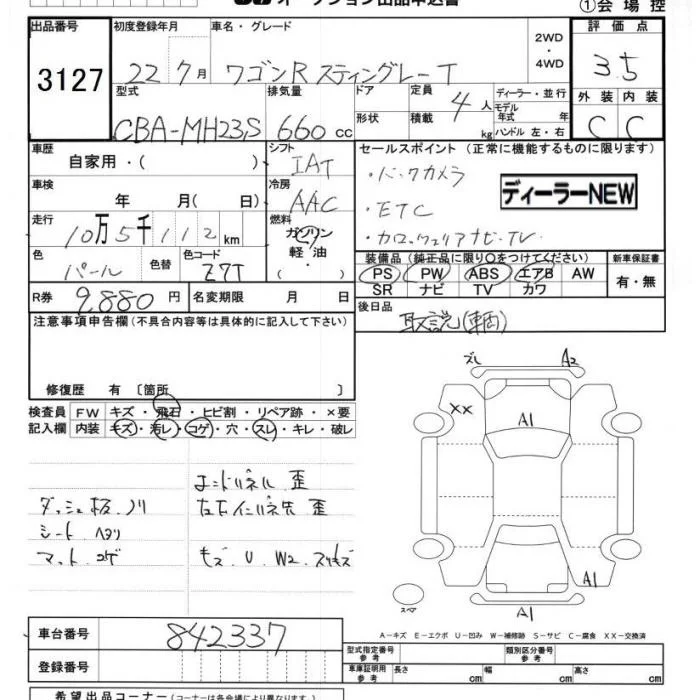 オークション出品申込書
①会場控
出品番号
3127
初度登録年月
22 7月
車名・グレード
ワゴンR スティングレー T
2WD
・
4WD
評価点
3.5
外装 内装
C C
型式
CBA-MH23S
排気量
660 cc
ドア
形状
定員 4 人
積載 kg
ディーラー・並行
モデル
年式 年
ハンドル 左・右
車歴
自家用・( )
シフト
IAT
車検
年 月( 日)
冷房
AAC
走行
10万5千112km
燃料
ガソリン
軽油
・( )
色
パール
色替
色コード
Z7T
R券 9,880 円
名変期限 月 日
セールスポイント (正常に機能するものに限ります)
・バックカメラ
・ETC
・カロッツェリアナビ・TV
ディーラーNEW
装備品(純正品に限り○をつけてください)
新車保証書
PS PW ABS エアB AW
SR ナビ TV カワ
有・無
後日品
取説(車両)
注意事項申告欄(不具合内容等は具体的に記入して下さい)
修復歴 有 〔箇所 〕
検査員 FW キズ・飛石・ヒビ割・リペア跡・×要
記入欄 内装 キズ・汚レ・コゲ・穴・スレ・キレ・破レ
エンドパネル 歪
ダッシュ板、ノリ
左右インパネ先 歪
シート ヘタリ
マット コゲ
キズ・U・W2 スリキズ
ズレ
A2
XX
A1
A1
A1
スペア
A-キズ E-エクボ U-凹み W-補修跡 S-サビ C-腐食 XX-交換済
車台番号
842337
登録番号
型式指定番号
参考
類別区分番号
参考
車庫証明用
参考
長さ cm
幅 cm
高さ cm
希望出品コーナー(コーナーは各会場により異なります)